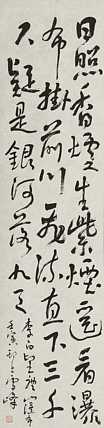 日照香爐生紫煙遙看瀑
布掛前川飛流直下三千
尺疑是銀河落九天
李白望廬山瀑布
壬寅 雪峰